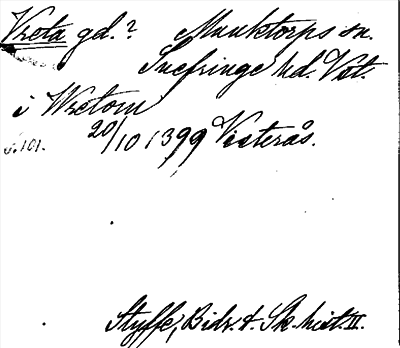 Vreta gd.? Munktorps sn.
Snefringe hd. Vstl.
i Wretom
20/10 1399 Västerås.
s. 101.
Styffe, Bidr. t. Sk. hist. II.